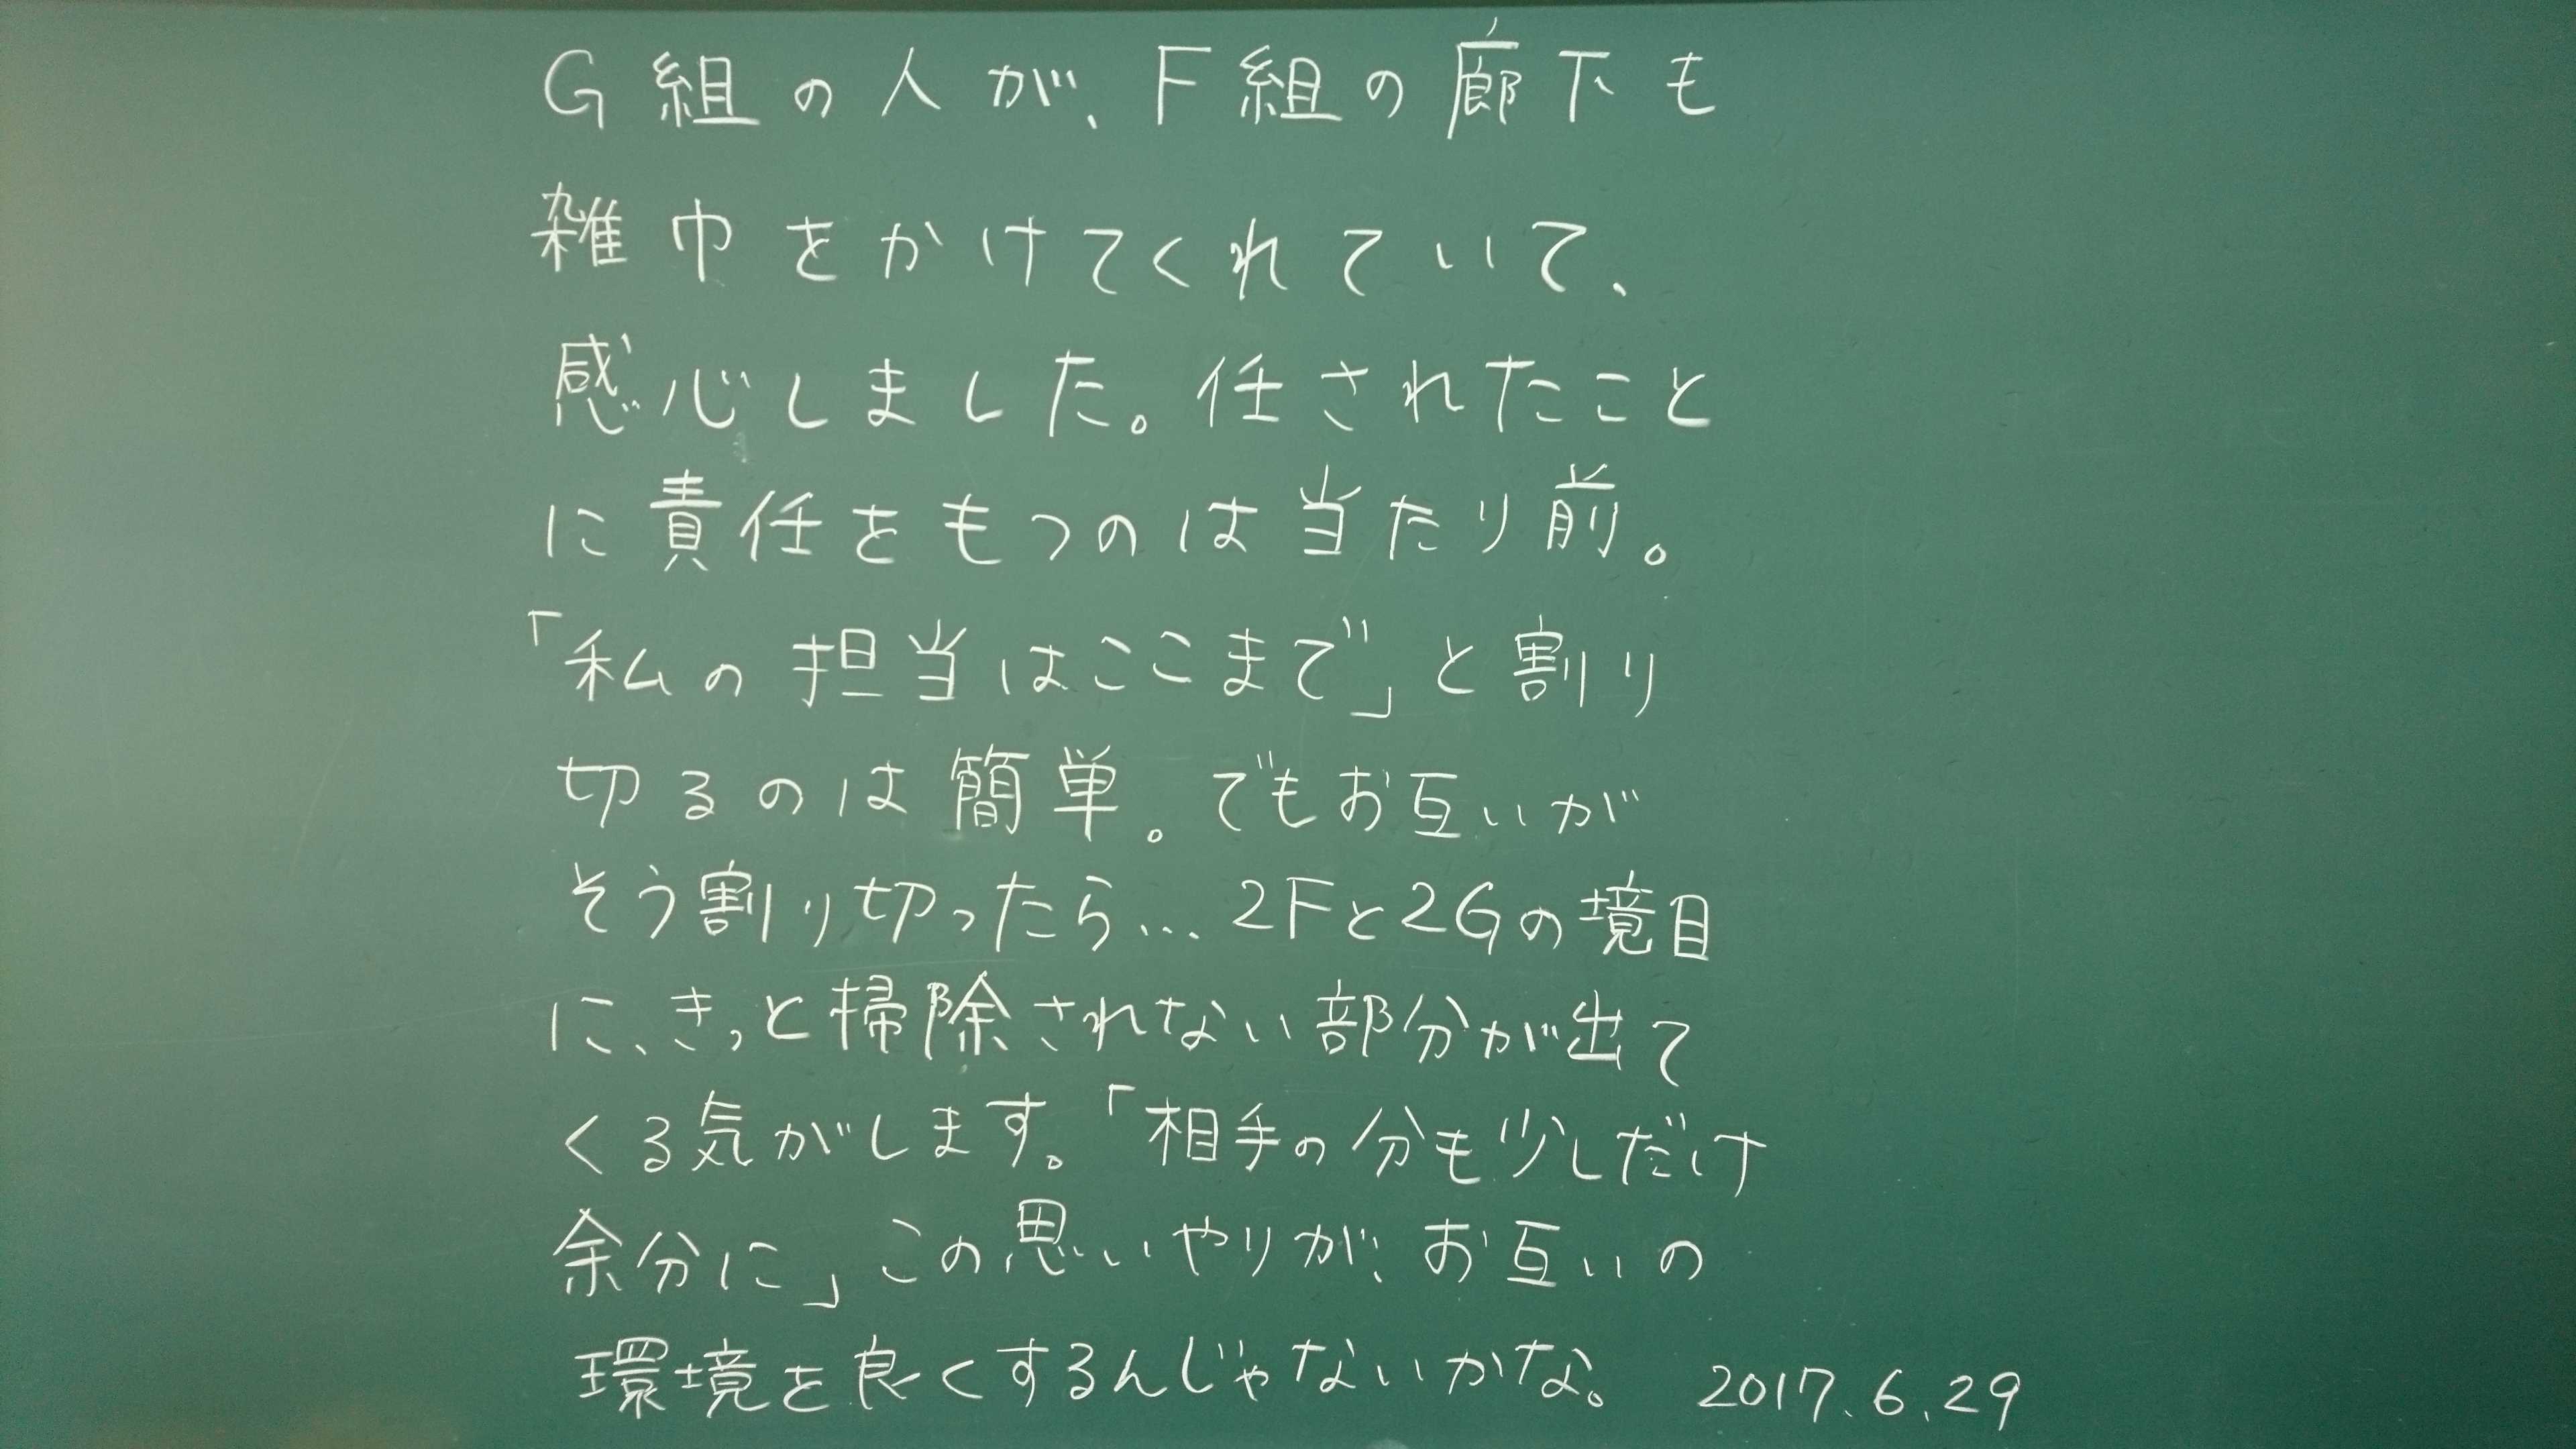 G組の人が、F組の廊下も
雑巾をかけてくれていて、
感心しました。任されたこと
に責任をもつのは当たり前。
「私の担当はここまで」と割り
切るのは簡単。でもお互いが
そう割り切ったら…2Fと2Gの境目
に、きっと掃除されない部分が出て
くる気がします。「相手の分も少しだけ
余分に」この思いやりが、お互いの
環境を良くするんじゃないかな。 2017.6.29